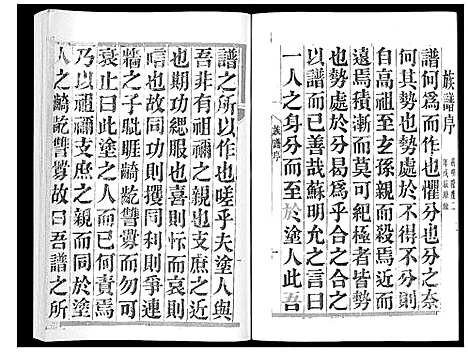 族譜序
譜何為而作也懼分也分之奈
何其勢也勢處於不得不分則
自高祖至玄孫親而殺焉近而
遠焉積漸而莫可紀極者皆勢
也勢處於分之而不少合之合之
以譜而已善哉蘇明允之言曰
一人之身分而至於塗人此吾
族譜序
譜之所以作也嗟乎夫塗人與
吾非有祖禰之親也支庶之近
也期功緦服也喜則忭而哀則
唁也故同功則獲同利則爭連
牆之子眦睚齮齕讐釁而勿可
衰止曰此塗之人而已何責焉
乃以祖禰支庶之親而同於塗
人之齮齕讐釁故曰吾譜之所